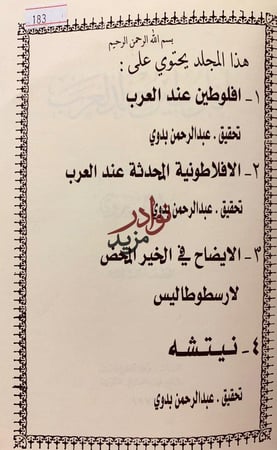 183
بسم الله الرحمن الرحيم
هذا المجلد يحتوي على :
١ - افلوطين عند العرب
تحقيق . عبدالرحمن بدوي
٢ - الافلاطونية المحدثة عند العرب
تحقيق . عبدالرحمن بدوي
نوادر
مزيد
٣ - الايضاح في الخير المحض
لارسطوطاليس
٤ - نيتشه
تحقيق . عبدالرحمن بدوي